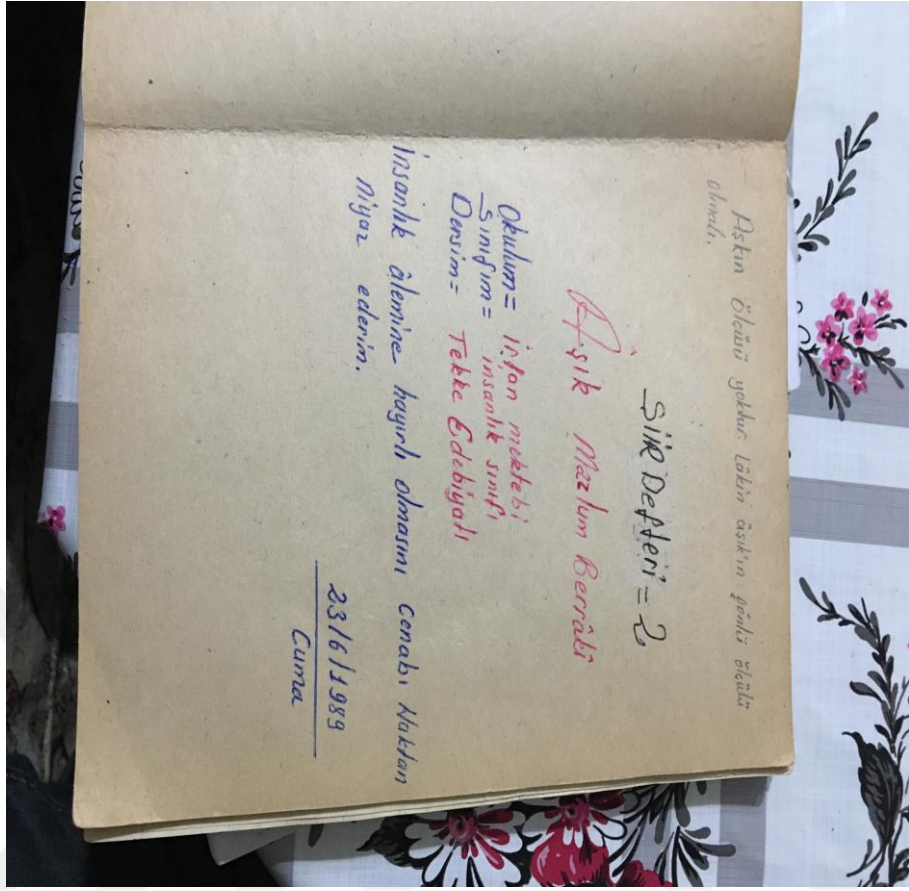 Aşkın ölçüsü yoktur. Lâkin âşık'ın gönlü ölçülü
olmalı.
ŞİİR Defteri = 2
Aşık Mazlum Berrâki
Okulum = İrfan mektebi
Sınıfım = insanlık sınıfı
Dersim = Tekke Edebiyatı
İnsanlık âlemine hayırlı olmasını Cenabı Haktan
niyaz ederim.
23/6/1989
Cuma